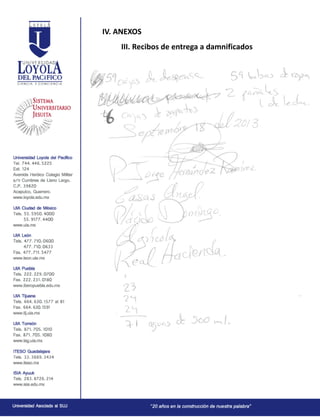 UNIVERSIDAD
LOYOLA
DEL PACÍFICO
CIENCIA Y CONCIENCIA
SISTEMA
UNIVERSITARIO
JESUITA
Universidad Loyola del Pacífico
Tel. 744. 446. 5225
Ext. 124
Avenida Heróico Colegio Militar
s/n Cumbres de Llano Largo,
C.P. 39820
Acapulco, Guerrero.
www.loyola.edu.mx
UIA Ciudad de México
Tels. 55. 5950. 4000
55. 9177. 4400
www.uia.mx
UIA León
Tels. 477. 710. 0600
477. 710. 0633
Fax. 477. 711. 5477
www.leon.uia.mx
UIA Puebla
Tels. 222. 229. 0700
Fax. 222. 231. 0180
www.iberopuebla.edu.mx
UIA Tijuana
Tels. 664. 630. 1577 al 81
Fax. 664. 630. 1591
www.tij.uia.mx
UIA Torreón
Tels. 871. 705. 1010
Fax. 871. 705. 1080
www.lag.uia.mx
ITESO Guadalajara
Tels. 33. 3669. 3434
www.iteso.mx
ISIA Ayuuk
Tels. 283. 8726. 214
www.isia.edu.mx
IV. ANEXOS
III. Recibos de entrega a damnificados
59 cajas de despensa
59 bolsas de ropa
2 pañales
de leche
6 cajas de zapatos
Septiembre 18 del 2013
Jorge Hernández Ramírez
Casas Angel
Domingo
Agrícola
Real Hacienda.
23
24
24
71 aguas de 500 ml.
Universidad Asociada al SUJ
"20 años en la construcción de nuestra palabra"